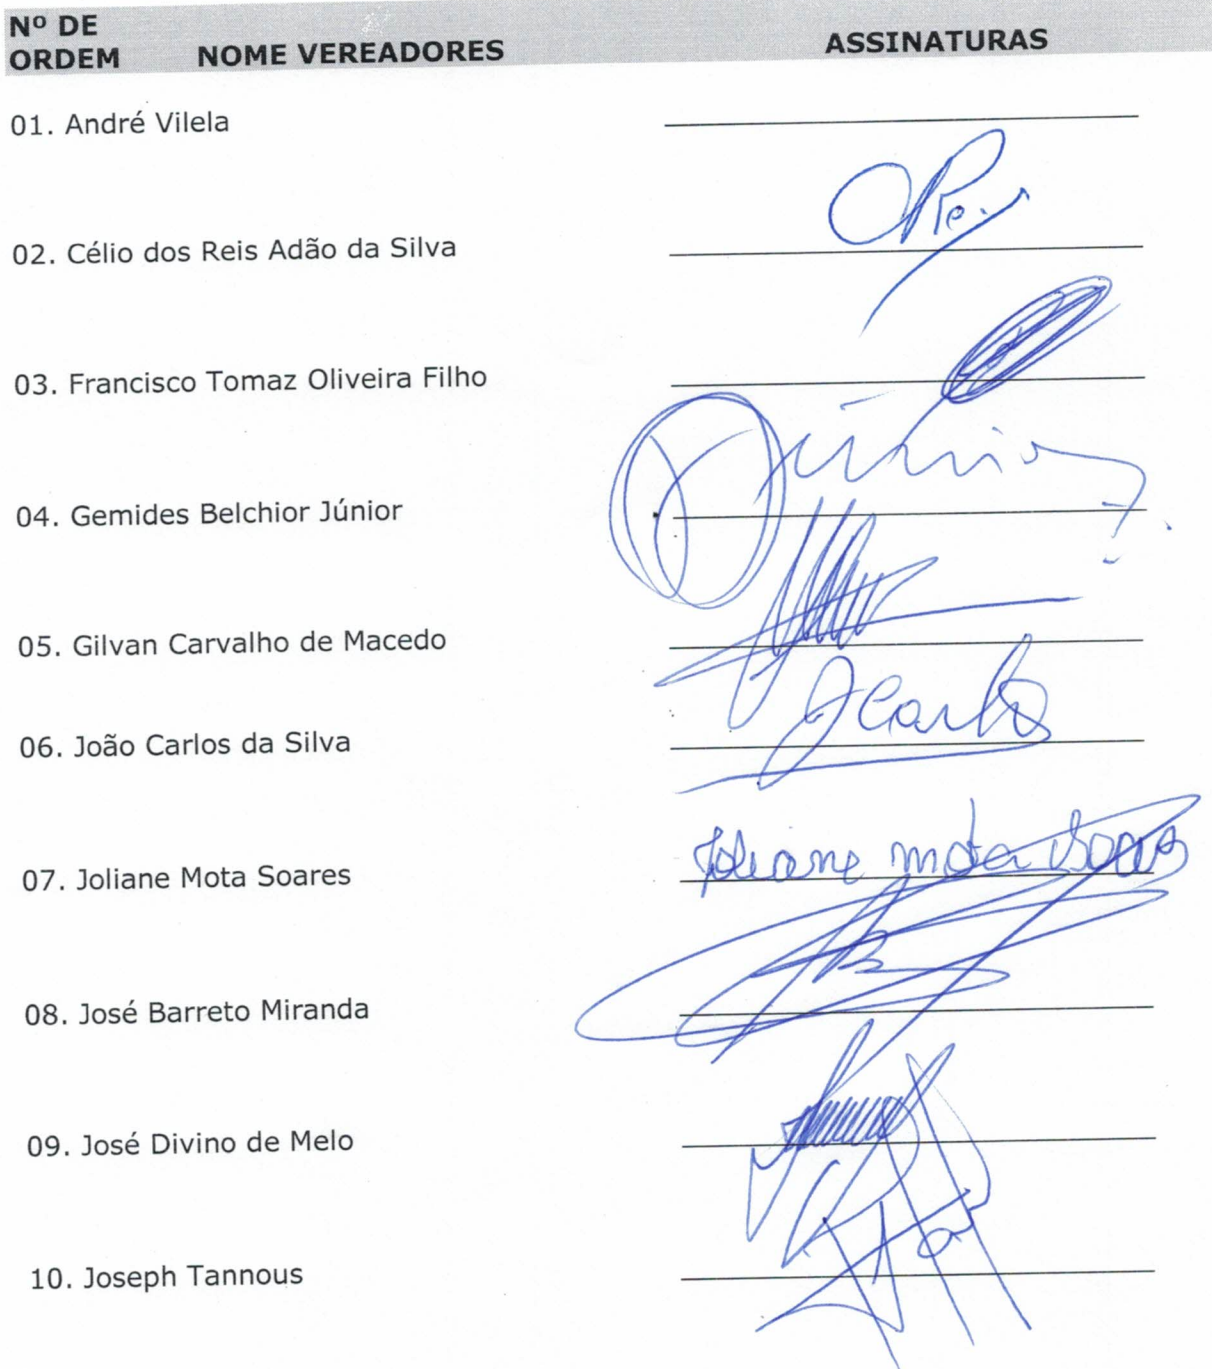 Nº DE
ORDEM NOME VEREADORES ASSINATURAS
01. André Vilela
02. Célio dos Reis Adão da Silva
03. Francisco Tomaz Oliveira Filho
Júnior
04. Gemides Belchior Júnior
05. Gilvan Carvalho de Macedo
JCarlos
06. João Carlos da Silva
07. Joliane Mota Soares Joliane mota Soares
08. José Barreto Miranda
09. José Divino de Melo
10. Joseph Tannous